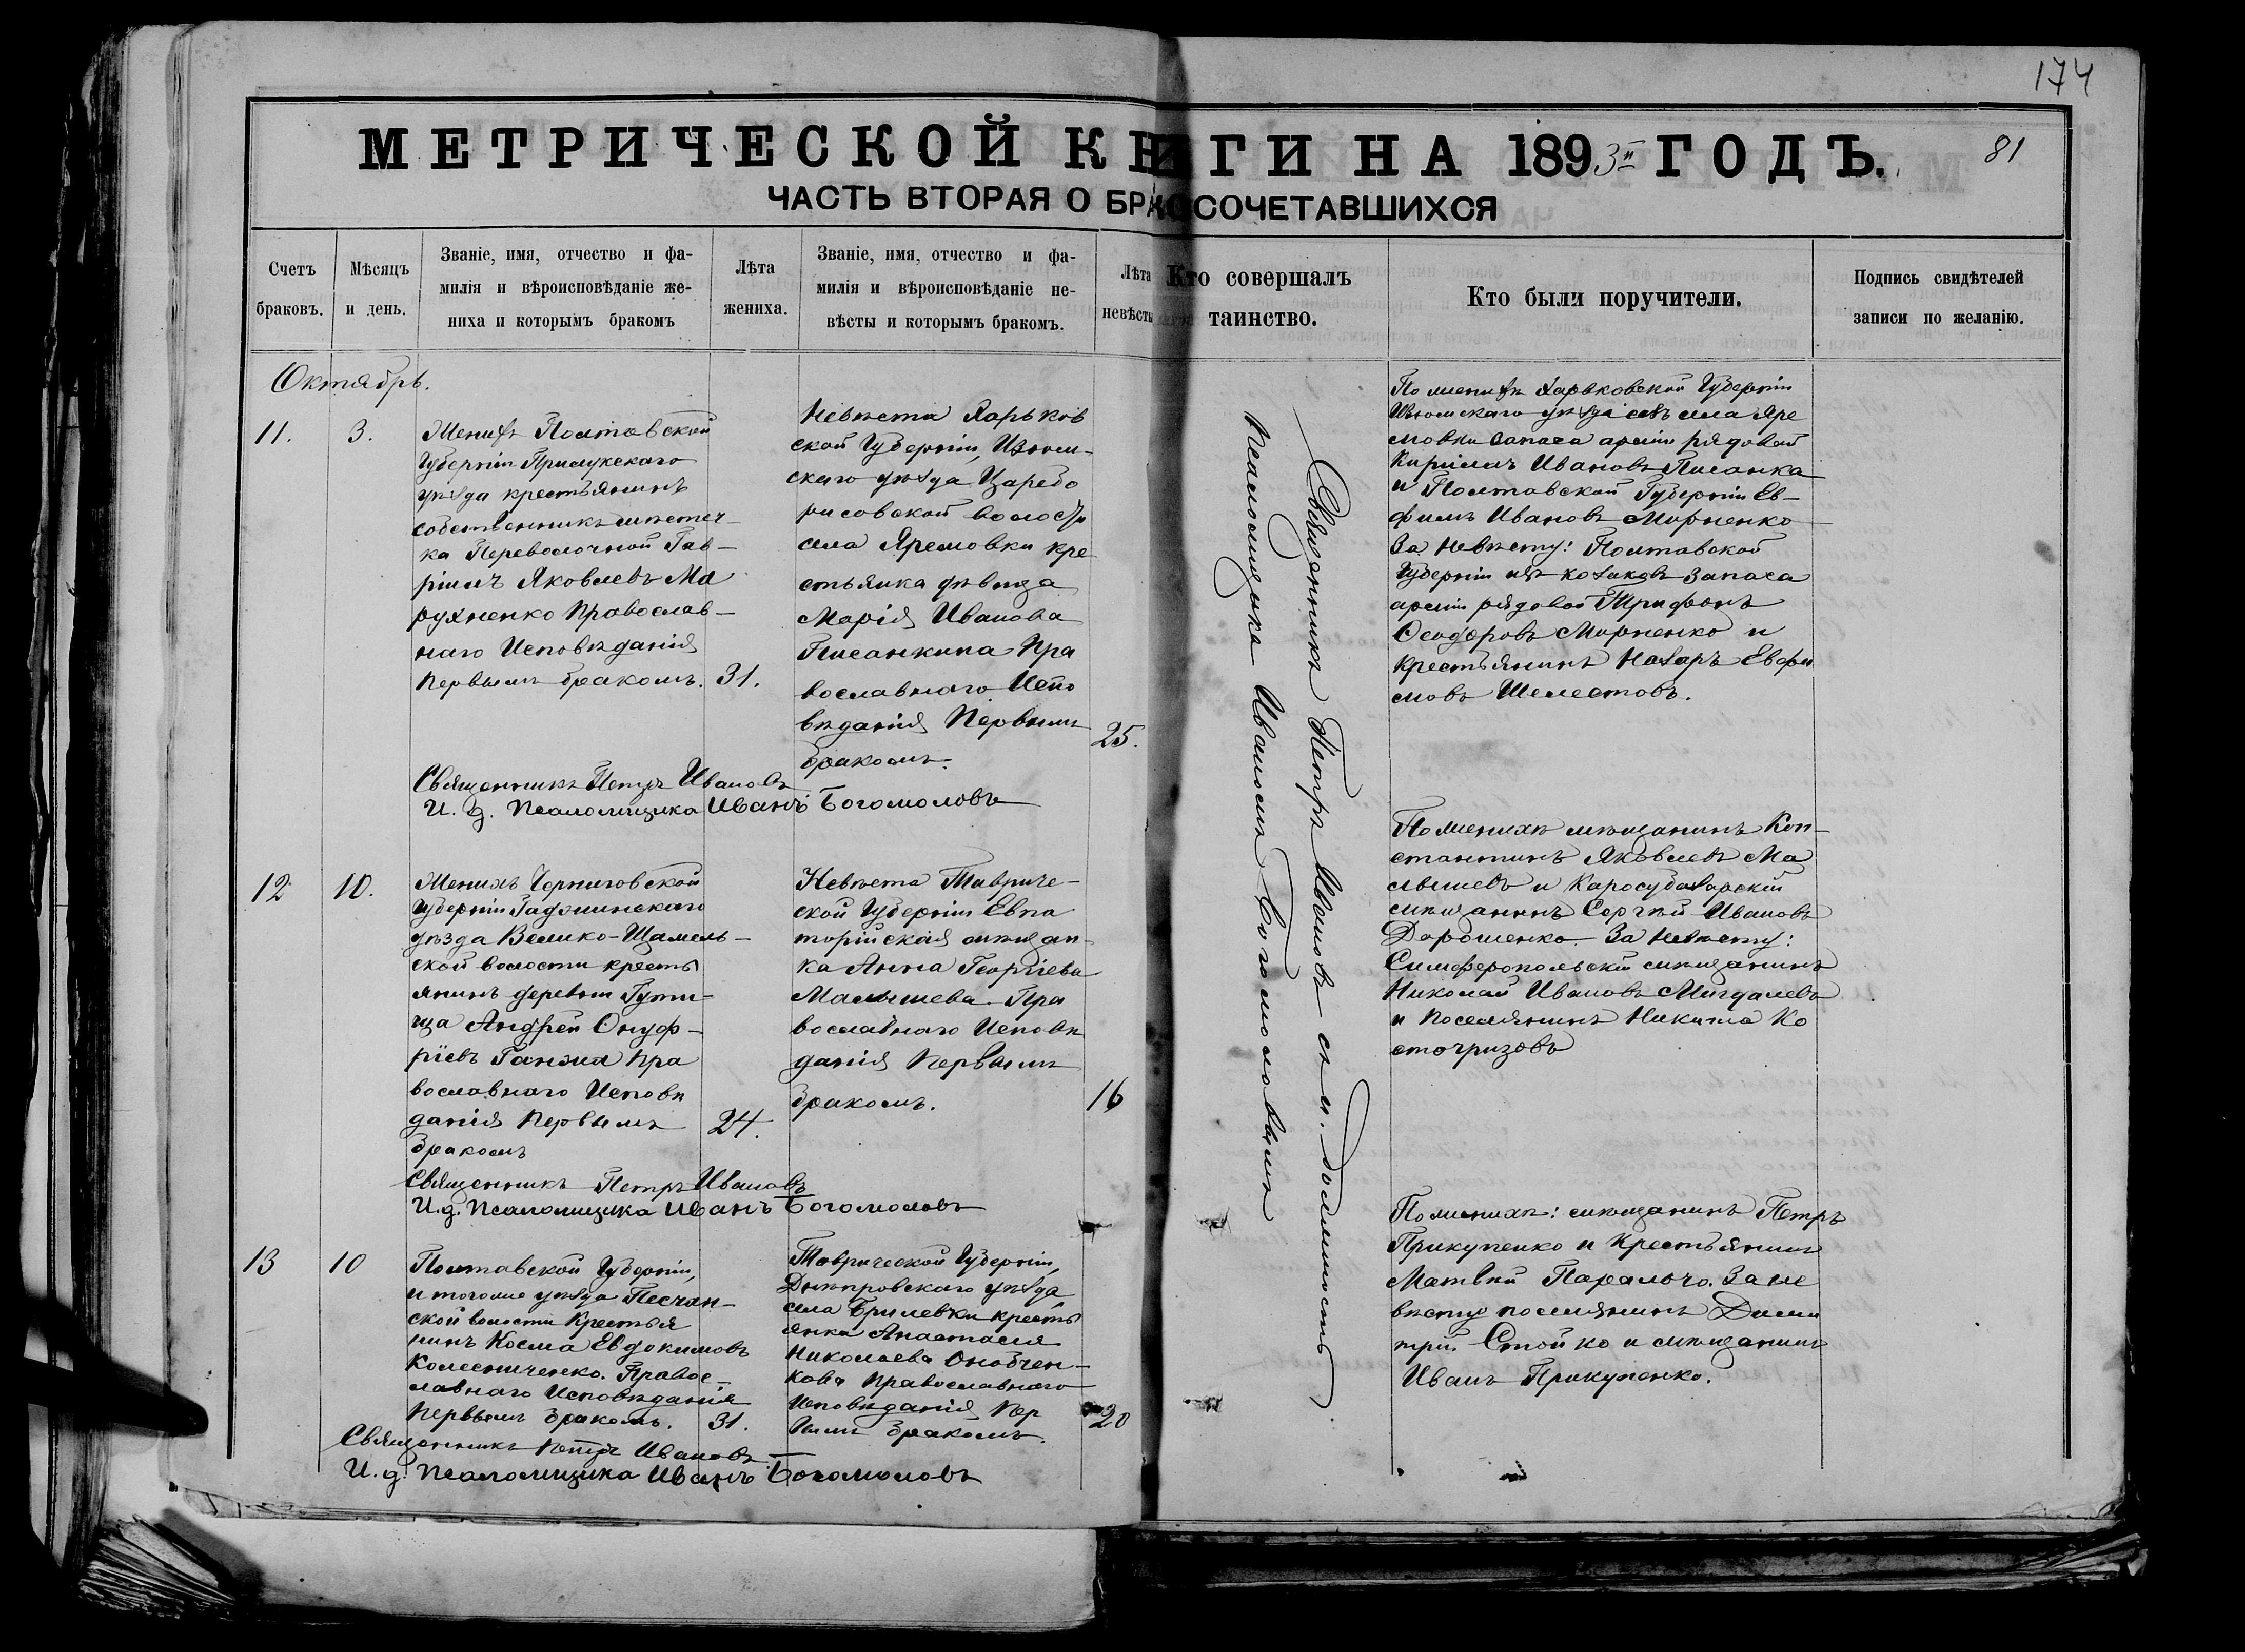 174
МЕТРИЧЕСКОЙ КНИГИ НА 1893й ГОДЪ.
81
ЧАСТЬ ВТОРАЯ О БРАКОСОЧЕТАВШИХСЯ
Счетъ
браковъ.
Мѣсяцъ
и день.
Званіе, имя, отчество и фа-
милія и вѣроисповѣданіе же-
ниха и которымъ бракомъ
Лѣта
жениха.
Званіе, имя, отчество и фа-
милія и вѣроисповѣданіе не-
вѣсты и которымъ бракомъ.
Лѣта
невѣсты
Кто совершалъ
таинство.
Кто были поручители.
Подпись свидѣтелей
записи по желанію.
Октябрь.
11.
3.
Женихъ Полтавской
Губерніи Прилукскаго
уѣзда крестьянинъ
собственникъ мѣстеч-
ка Переволочной Гав-
ріилъ Яковлевъ Ма
рухненко Православ-
наго Исповѣданія
первымъ бракомъ.
31.
Невѣста Харьков
ской Губерніи, Изюм-
скаго уѣзда Царебо
рисовской волости
села Яремовки кре
стьянка дѣвица
Марія Иванова
Писанкина Пра
вославнаго Испо
вѣданія Первымъ
бракомъ.
25.
Священникъ Петръ Ивановъ
И. д. Псаломщика Иванъ Богомоловъ
Священникъ Петръ Ивановъ съ и. должность
Псаломщика Иваномъ Богомоловымъ
По женихѣ Харьковской Губерніи
Изюмскаго уѣзда села Яре
мовки запаса арміи рядовой
Кириллъ Ивановъ Писанка
и Полтавской Губерніи Ев-
фимъ Ивановъ Мирненко
За невѣсту: Полтавской
Губерніи изъ козаковъ запаса
арміи рядовой Трифонъ
Ѳеодоровъ Мирненко и
крестьянинъ Назаръ Евфи
мовъ Шелестовъ.
12
10.
Женихъ Черниговской
Губерніи
уѣзда Велико-
ской волости кресть
янинъ деревни Гути-
ща Андрей Онуф-
ріевъ Ганжа Пра
вославнаго Исповѣ
данія Первымъ
бракомъ
24.
Невѣста Тавриче-
ской Губерніи Евпа
торійская мѣщан-
ка Анна Георгіева
Малышева Пра
вославнаго Исповѣ
данія первымъ
бракомъ.
16
Священникъ Петръ Ивановъ
И. д. Псаломщика Иванъ Богомоловъ
По женихѣ мѣщанинъ Кон-
стантинъ Яковлевъ Ма
лышевъ и Карасубазарскій
мѣщанинъ Сергѣй Ивановъ
Дорошенко. За невѣсту:
Симферопольскій мѣщанинъ
Николай Ивановъ Мигдалевъ
и поселянинъ Никита Ко
стогризовъ
13
10
Полтавской Губерніи,
и тогоже уѣзда Песчан-
ской волости Крестья
нинъ Косма Евдокимовъ
Колесниченко. Правос-
лавнаго Исповѣданія
первымъ бракомъ.
31.
Таврической Губерніи,
Днѣпровскаго уѣзда
села Брилевки кресть
янка Анастасія
Николаева
кова Православнаго
Исповѣданія Пер
вымъ бракомъ.
20
Священникъ Петръ Ивановъ
И. д. Псаломщика Иванъ Богомоловъ
По женихѣ: мѣщанинъ Петръ
Прикупенко и Крестьянинъ
Матвѣй За не
вѣсту поселянинъ Дими
трій Стойко и мѣщанинъ
Иванъ Прикупенко.